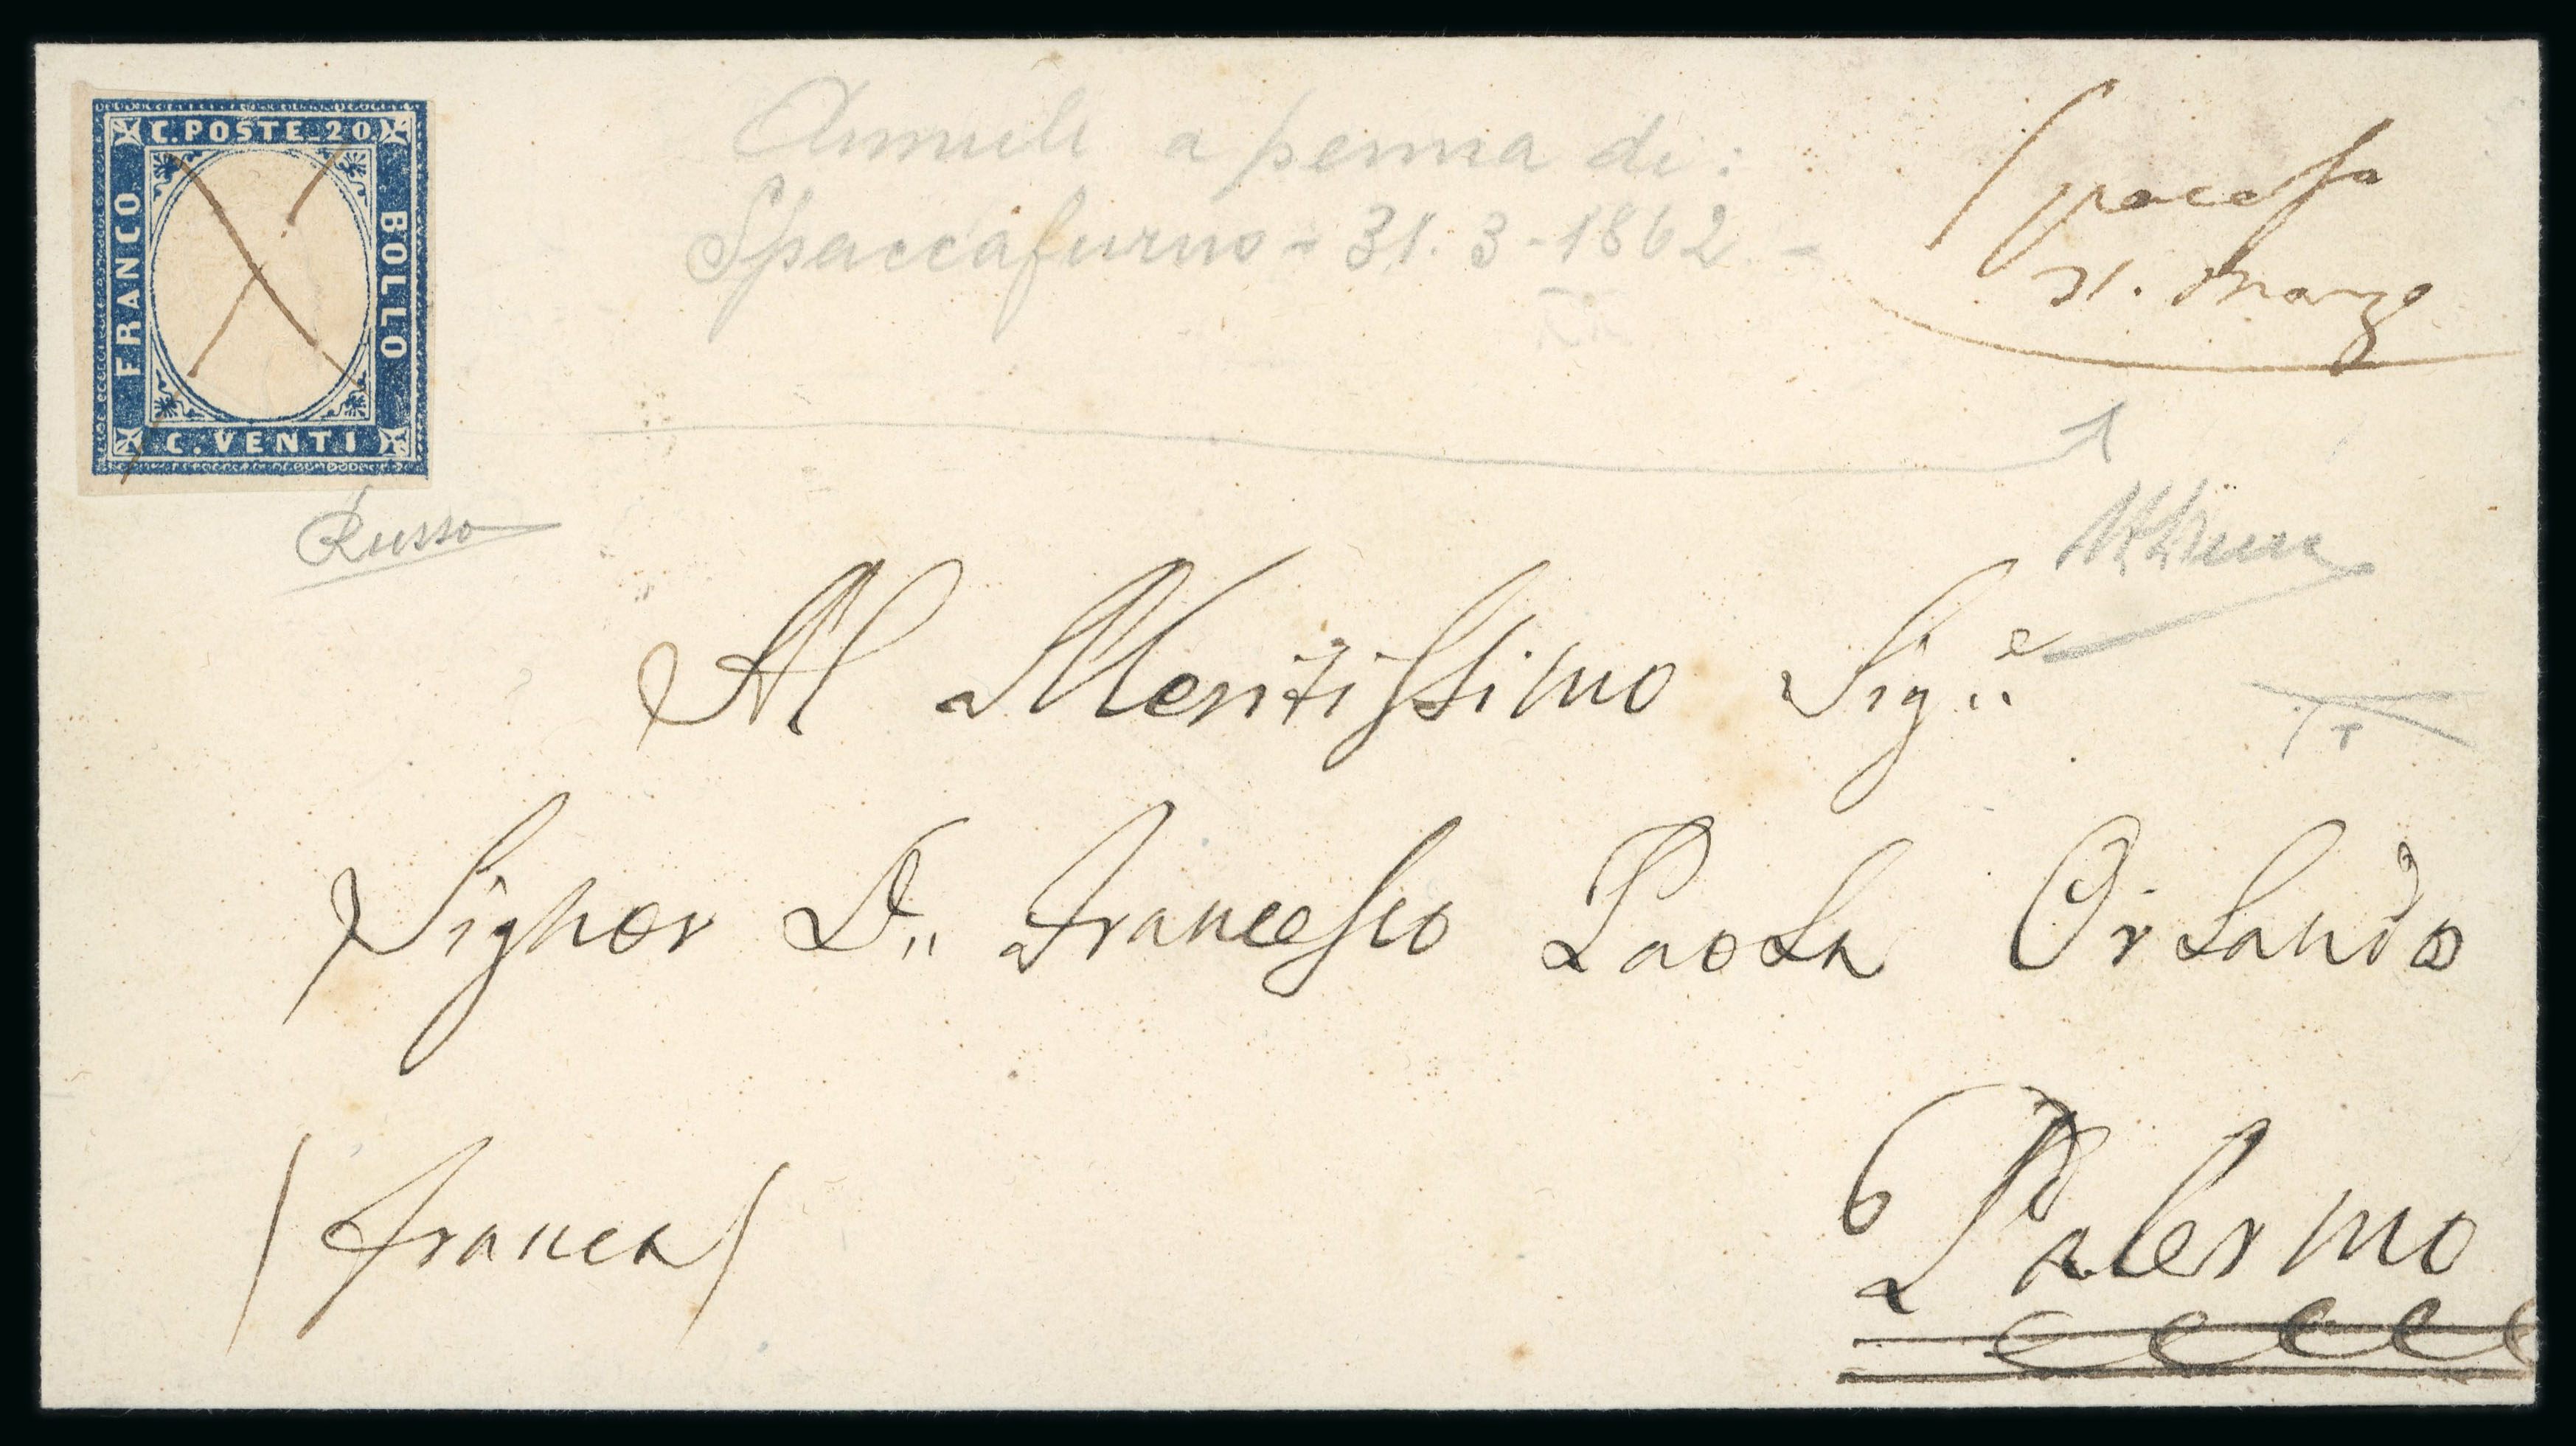 C. POSTE 20
FRANCO
BOLLO
C. VENTI
Annulli a penna di:
Spaccafurno - 31.3-1862 -
Spaccafo
31. Marzo
Russo
Al Meritissimo Sig.e
Signor D.n Francesco Paola Orlando
Franca
Palermo